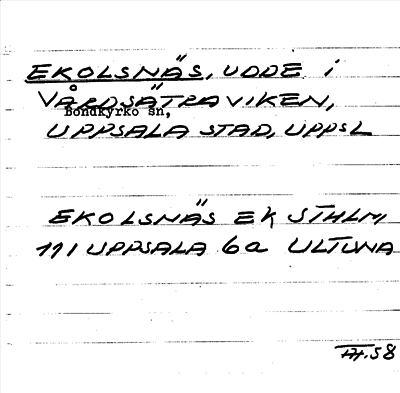 EKOLSNÄS, UDDE i
VÅRDSÄTRAVIKEN,
Bondkyrko sn,
UPPSALA STAD, UPPSL
EKOLSNÄS EK STHLM,
111 UPPSALA 6a ULTUNA
.58